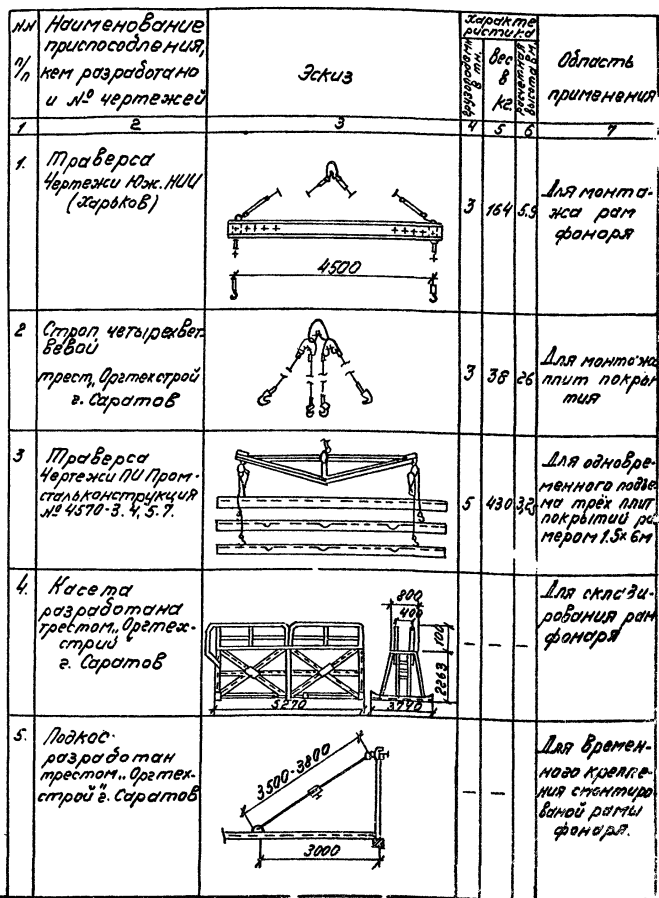 NN п/п
Наименование
приспособления,
кем разработано
и № чертежей
Эскиз
Характе
ристика
грузоподъемн. в тн.
Вес в кг
расчетная высота в м.
Область
применения
1 2 3 4 5 6 7
1. Траверса
Чертежи Юж. НИИ
(Харьков)
4500
3 164 5.9
Для монта-
жа рам
фонаря
2 Строп четырехвет-
вевой
трест „Оргтехстрой
г. Саратов
3 38 26
Для монтажа
плит покры
тия
3 Траверса
Чертежи ПИ Пром-
стальконструкция
№ 4570-3. 4, 5. 7.
5 430 3,25
Для одновре-
менного подъе
ма трёх плит
покрытий ра
мером 1.5х6м
4. Касета
разработана
трестом „Оргтех-
стрий
г. Саратов
5270
800
400
100
2263
3740
— — —
Для склази-
рования рам
фонаря
5. Подкос
разработан
трестом „Оргтех-
строй" г. Саратов
3500-3800
3000
— —
Для времен-
ного крепле
ния смонтиро
ваной рамы
фонаря.